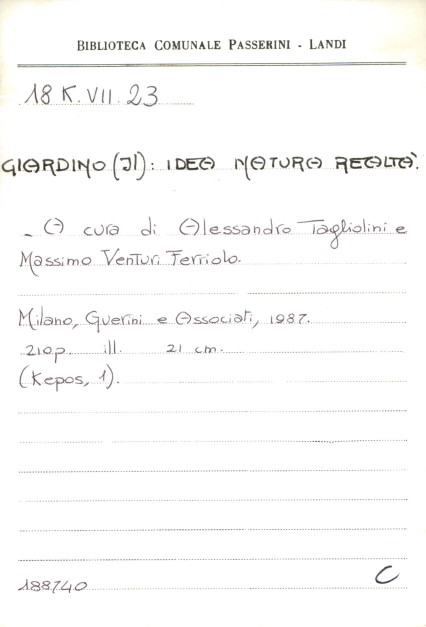 BIBLIOTECA COMUNALE PASSERINI - LANDI
18 K. VII. 23
GIARDINO (Il): IDEA NATURA REALTA'.
- A cura di Alessandro Tagliolini e
Massimo Venturi Ferriolo.
Milano, Guerini e Associati, 1987.
210p. ill. 21 cm.
(Kepos, 1).
188740
C